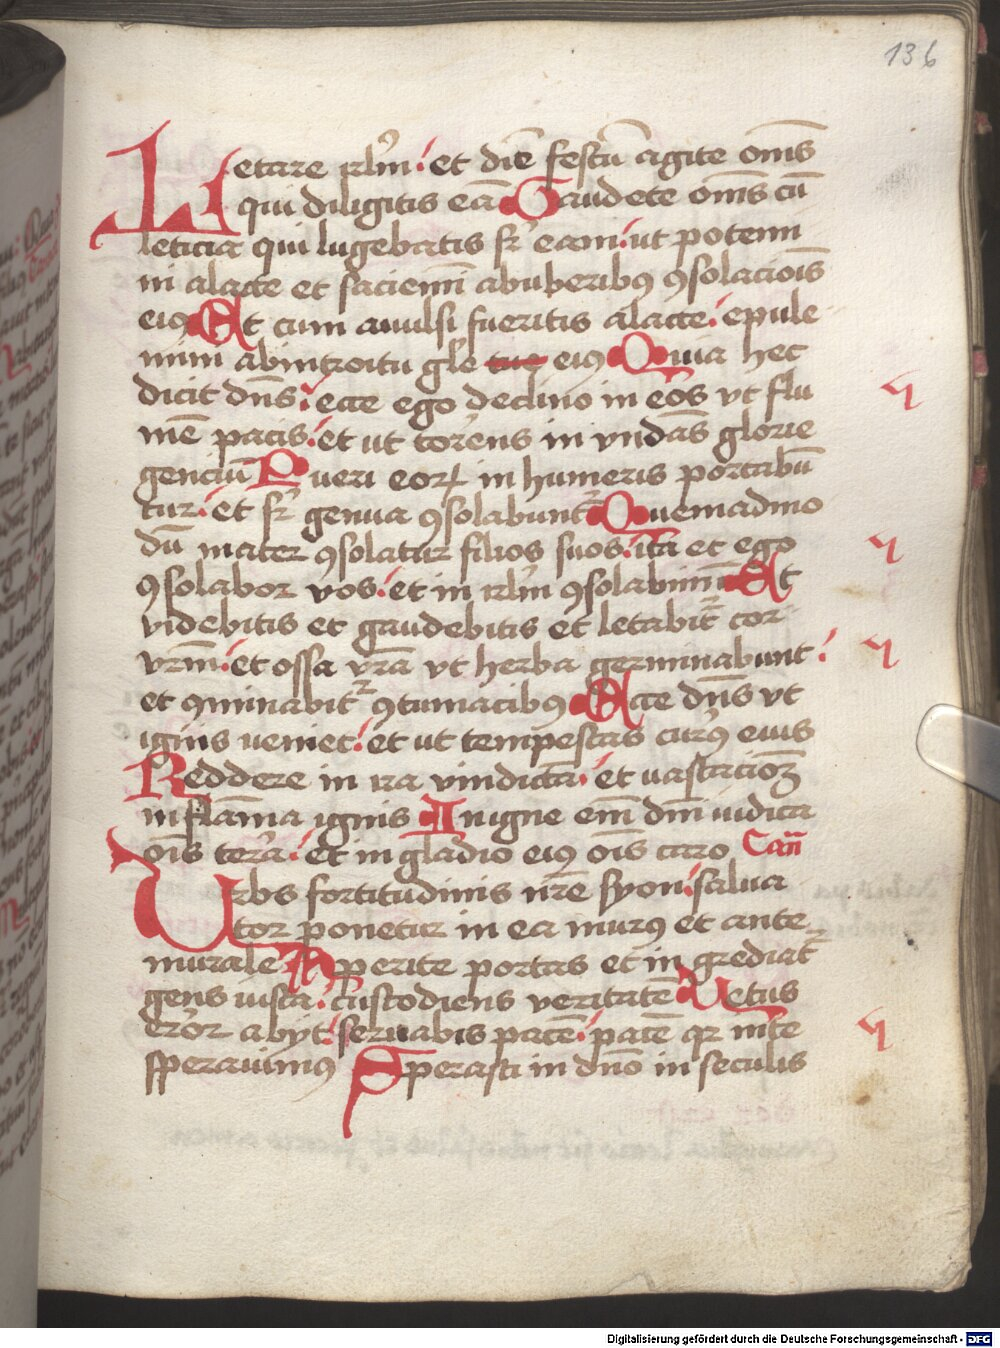 136
Letare irl̄m et diē festū agite om̄s
qui diligitis eā Gaudete om̄s cū
leticia qui lugebatis sr̄ eam ut potemi
ni a lacte et saciemī ab uberibꝰ ꝯsolacioīs
eiꝰ Et cum avulsi fueritis a lacte epule
mini ab introitu gl̄e tue eiꝰ Quia hec
dicit dn̄s ecce ego declino in eos vt flu
mē pacis et ut torrens in vndās glorie
genciū Pueri eorꝝ in humeris portabū
tur et sr̄ genua ꝯsolabunt᷑ Quemadmo
dū mater ꝯsolatur filios suos ita et ego
ꝯsolabor vos et in irl̄m ꝯsolabimī Et
videbitis et gaudebitis et letabit᷑ cor
vr̄m et ossa vr̄a vt herba germinabunt
et ꝯminabit᷑ ꝯtumacibꝰ Ecce dn̄s vt
ignis veniet et ut tempestas curꝰ eius
Reddere in ira vindictā et vastacioꝫ
in flam̄a ignis In igne em̄ dn̄i iudica
oīs terra et in gladio eiꝰ oīs caro Cān
Urbs fortitudinis nr̄e syon salua
tor ponetur in ea murꝰ et ante
murale Aperite portas et in grediat᷑
gens iusta custodiens veritatē Vetus
error abyt seruabis pacē pacē qr in te
speravimꝰ Sperasti in dn̄o in seculis
Digitalisierung gefördert durch die Deutsche Forschungsgemeinschaft - DFG